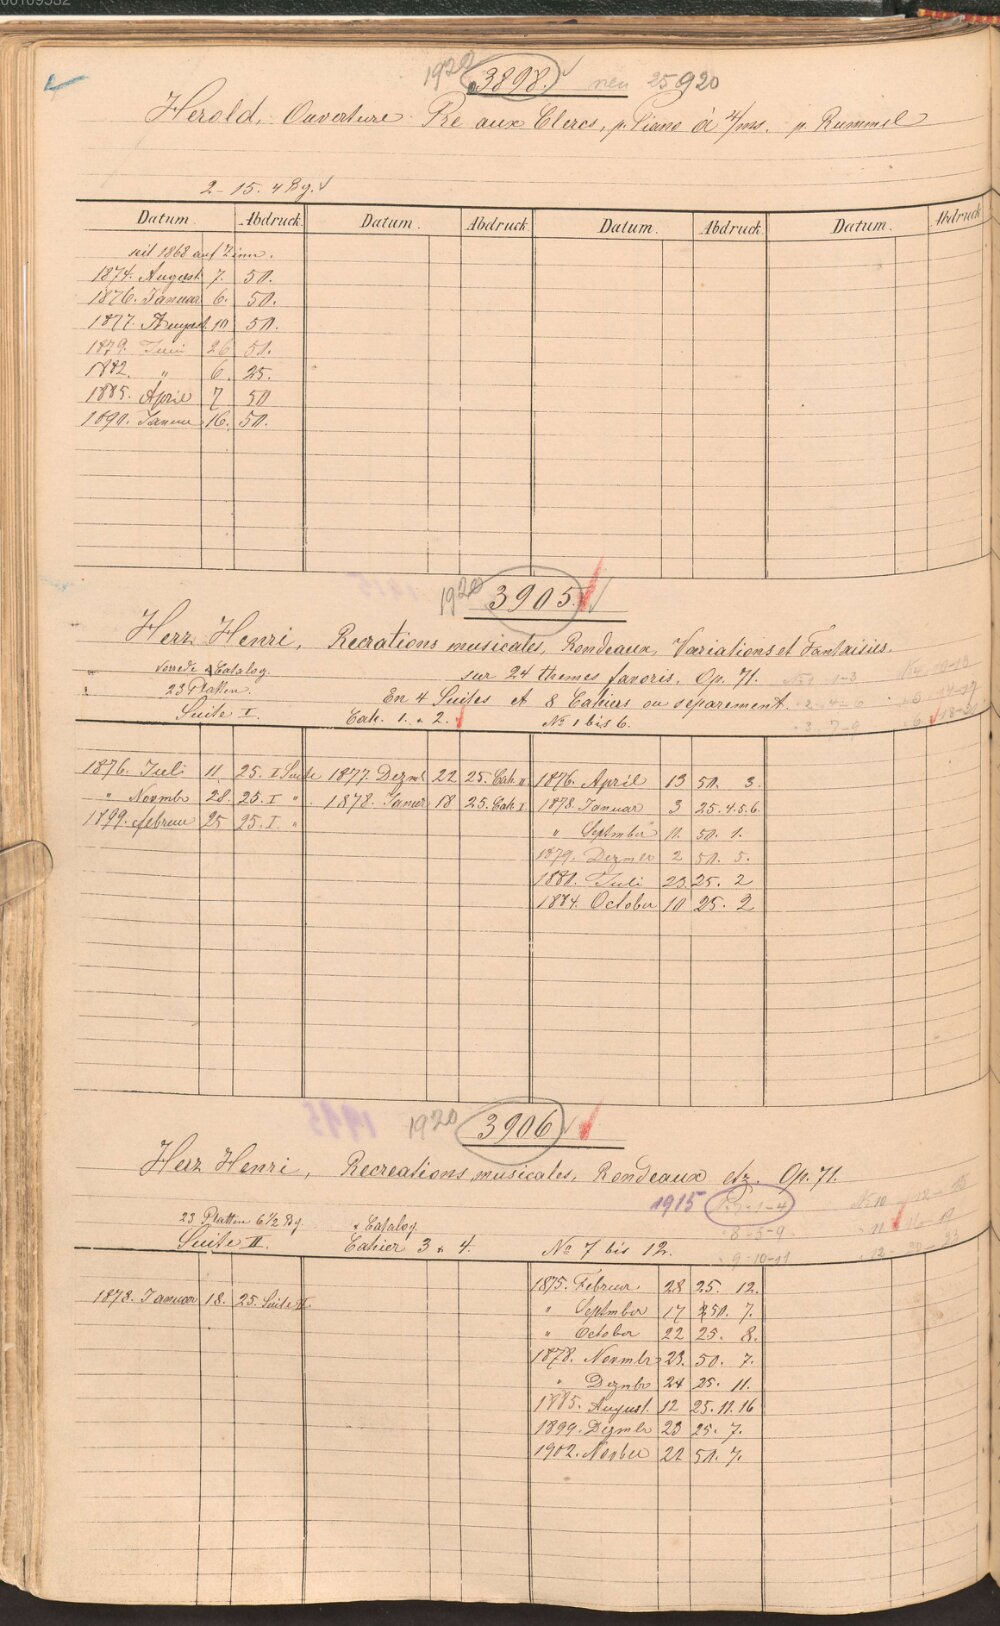 1920 3898. neu 25920
Herold, Ouverture Pré aux Clercs, p. Piano à 4/ms. p. Rummel
2-15. 4 Bg.
Datum. Abdruck. Datum. Abdruck. Datum. Abdruck. Datum. Abdruck.
seit 1868 auf Zinn.
1874. August 7. 50.
1876. Januar 6. 50.
1877. August 10 50.
1879. Juni 26 50.
1882. " 6. 25.
1885. April 7 50
1890. Januar 16. 50.
1920 3905.
Herz Henri, Recrations musicales, Rondeaux, Variations et Fantaisies.
Catalog. sur 24 themes favoris. Op. 71.
23 Platten. En 4 Suites et 8 Cahiers ou separement.
Suite I. Cah. 1. & 2. No 1 bis 6.
1876. Juli 11. 25. I Suite 1877. Dezmb 22 25. Cah. 1876. April 13 50. 3.
" Novmbr 28. 25. I " 1878. Januar 18 25. Cah. 1878. Januar 3 25. 4.5.6.
1899. Februar 25 25. I. " " Septmber 11. 50. 1.
1879. Dezmbr 2 50. 5.
1880. Juli 23. 25. 2
1884. October 10 25. 2
1920 3906
Herz Henri, Recreations musicales, Rondeaux etz. Op. 71.
1915
23 Platten 6 1/2 Bg. Catalog.
Suite II. Cahier 3 & 4. No 7 bis 12.
9-10-11
1875. Februar 28 25. 12.
1878. Januar 18. 25. Suite II " Septmber 17 50. 7.
" October 22 25. 8.
1878. Novmbr 23. 50. 7.
" Dezmbr 24 25. 11.
1885. August. 12 25. 11. 16
1899. Dezmbr 23 25. 7.
1902. Novber 22 50. 7.